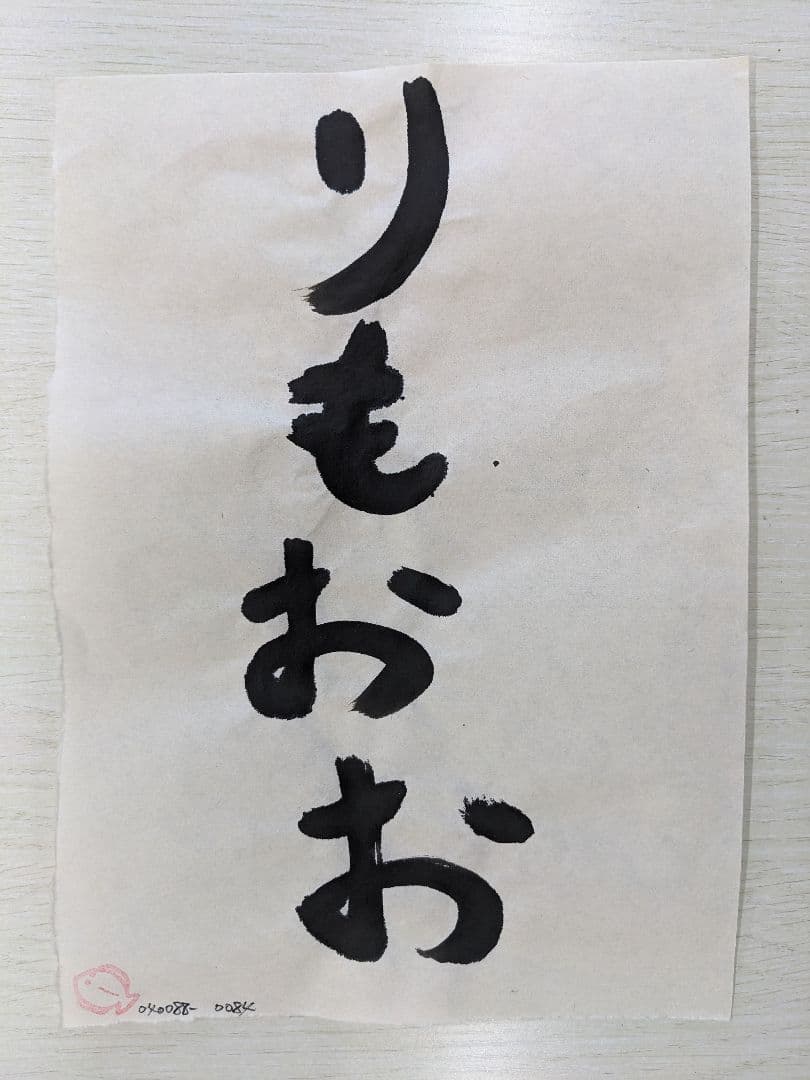 りもおお
040088- 0084